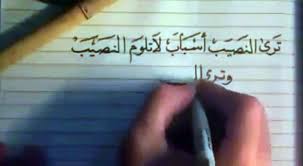 تَرَىٰ النَصِيب أسْبَابَ لَا تَلُومَ النصِيْبْ
وترى ال